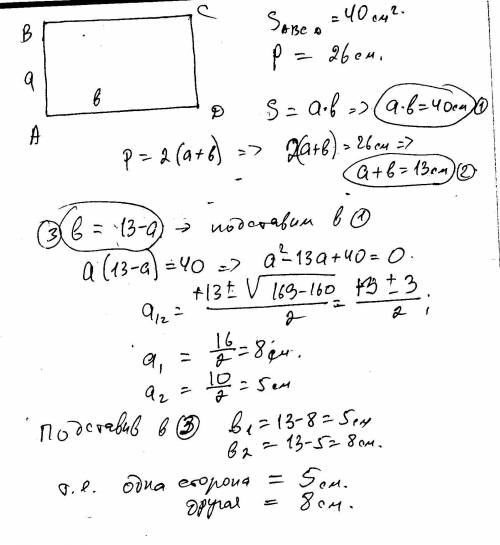 B C
a
в
A D
S ABCD = 40 см².
P = 26 см.
S = a·в => a·в = 40 см ①
P = 2(a+в) => 2(a+в) = 26 см =>
a+в = 13 см ②
③ в = 13-a → подставим в ①
a(13-a) = 40 => a²-13a+40 = 0.
a₁₂ = +13 ± √169-160 / 2 = +13 ± 3 / 2 ;
a₁ = 16/2 = 8 см.
a₂ = 10/2 = 5 см
Подставив в ③ в₁ = 13-8 = 5 см
в₂ = 13-5 = 8 см.
т.е. одна сторона = 5 см.
другая = 8 см.